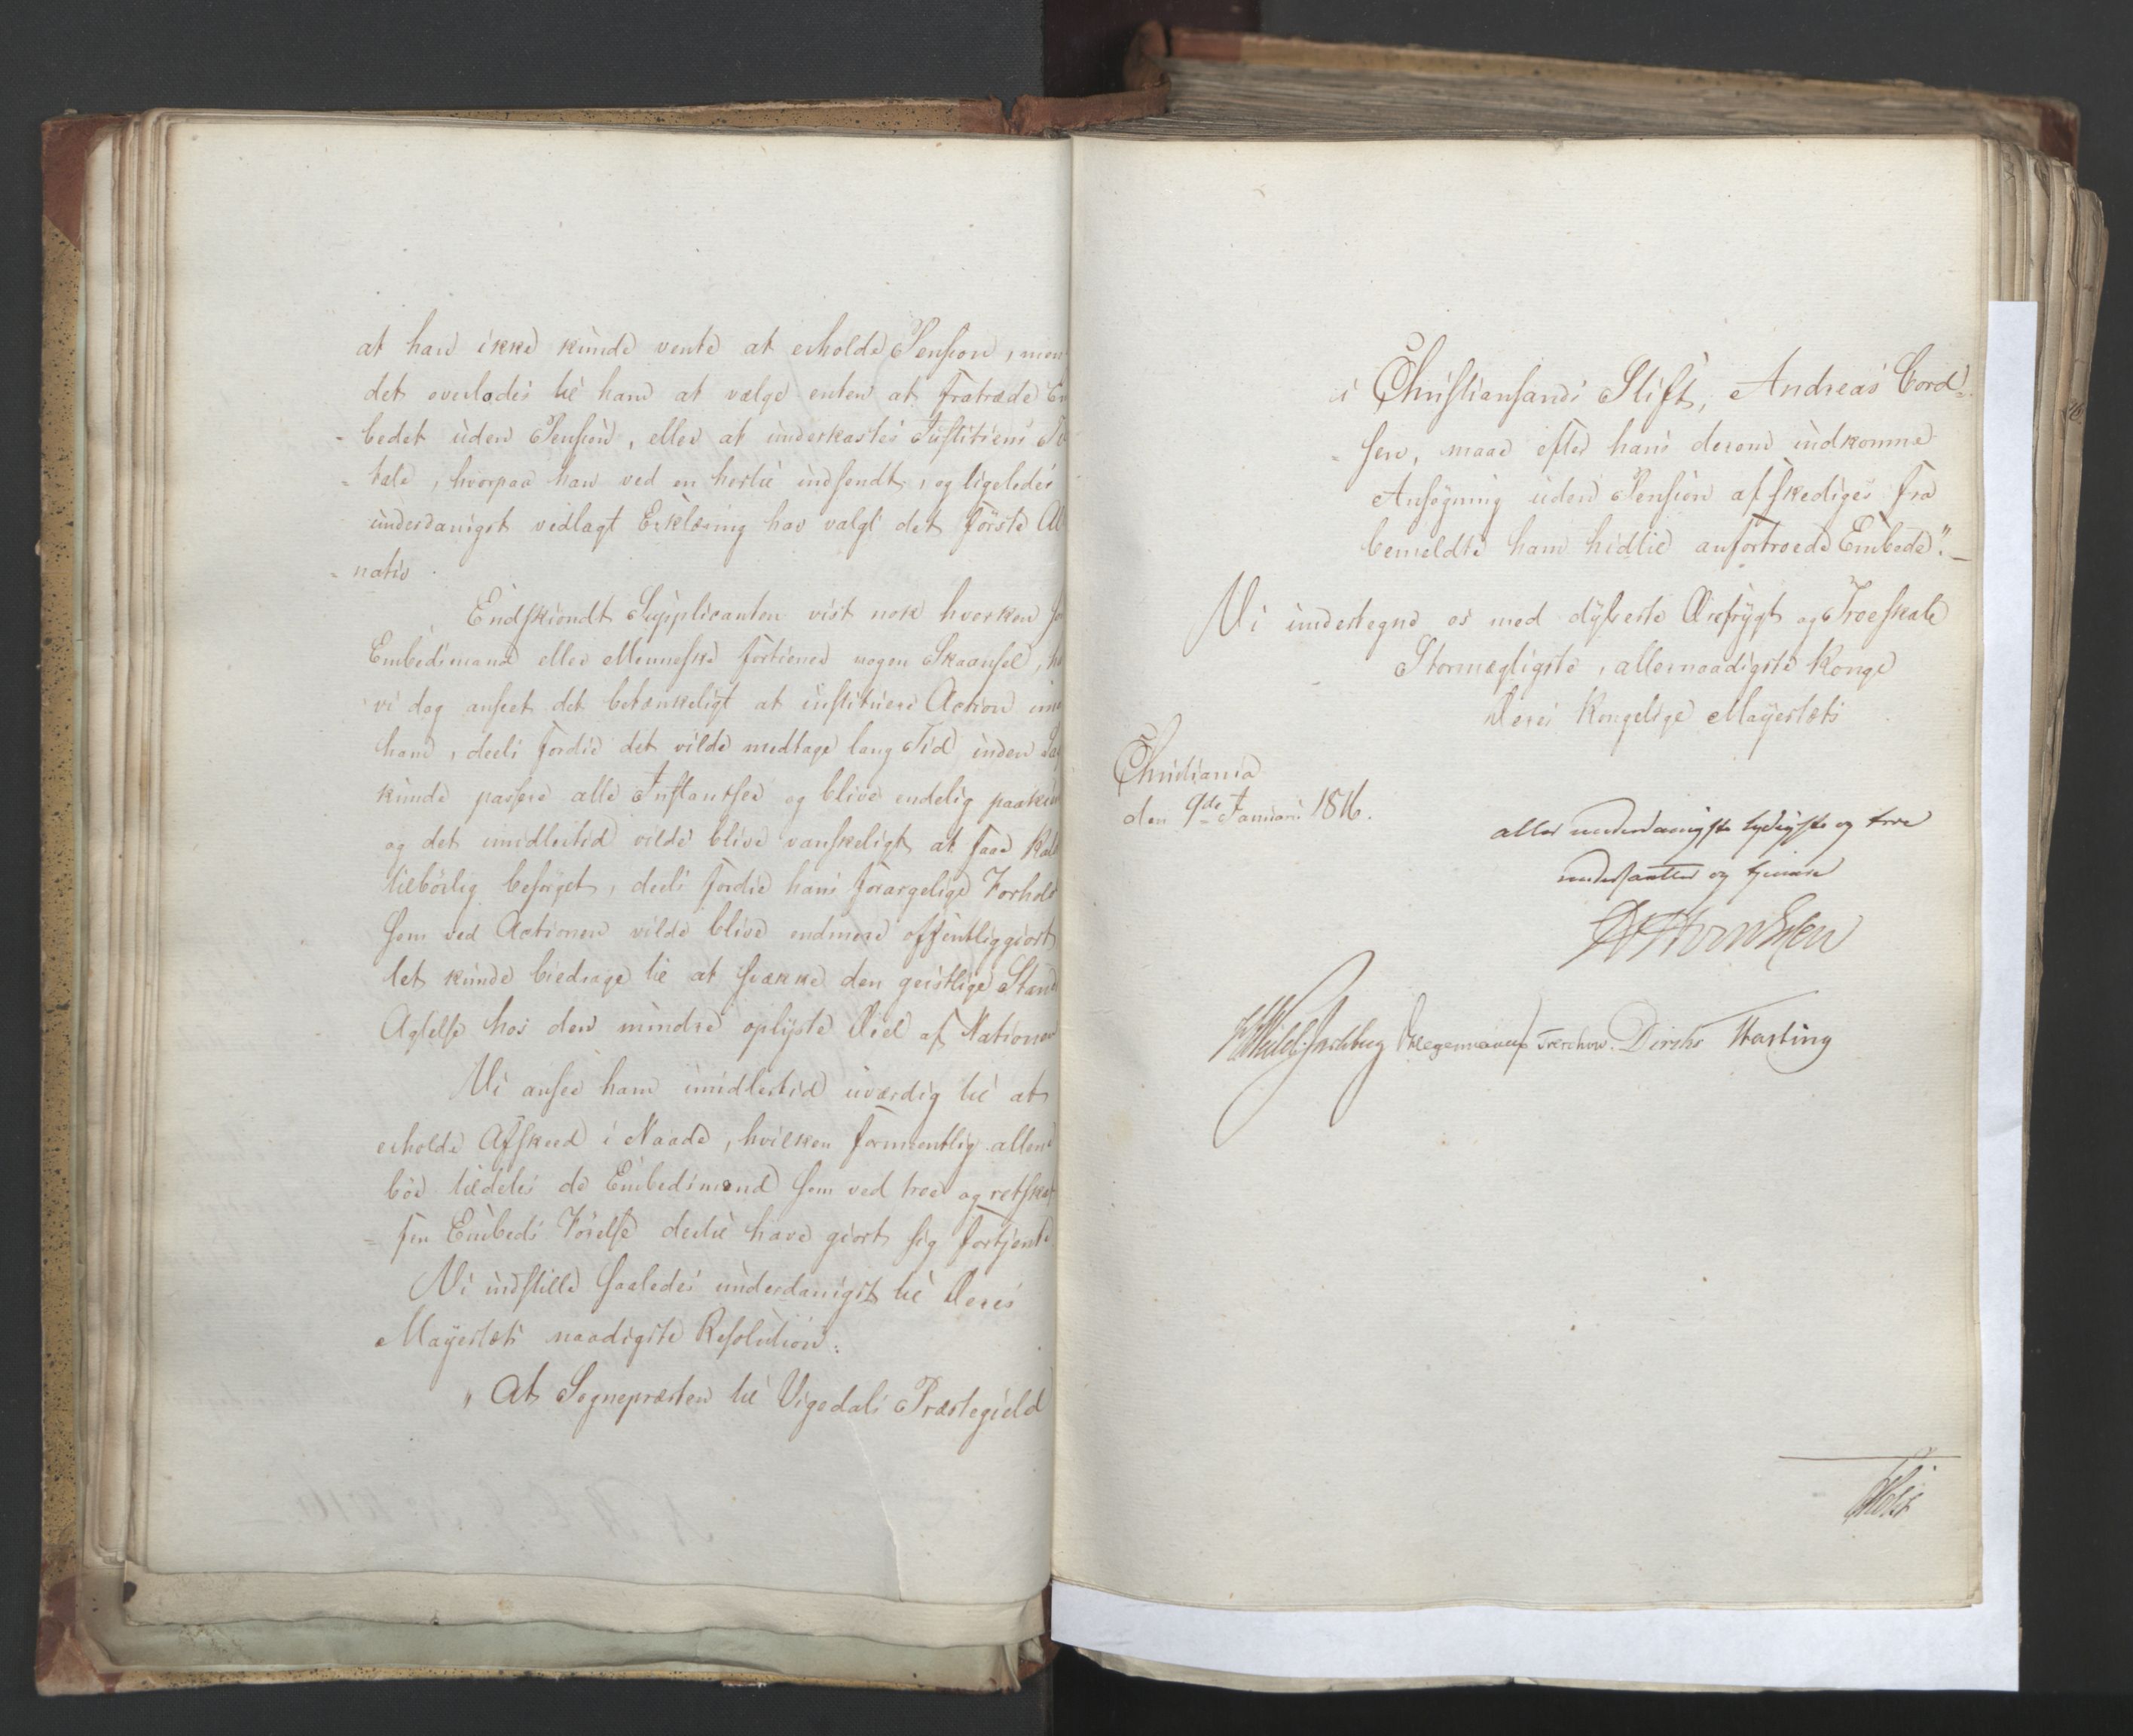 at han ikke kunde vente at erholde Pension, men
det overlodes til ham at vælge enten at fratræde Em
-bedet uden Pension, eller at underkastes Justitiens Til
-tale, hvorpaa han ved en hertil indsendt, og ligeledes
underdanigst vedlagt Erklæring har valgt det første Al
-nativ.
Endskiøndt Supplicanten vist nok hverken so
Embedsmand eller Menneske fortiener nogen Skaansel, ha
vi dog anseet det betænkeligt at instituere Action imo
ham, deels fordie det vilde medtage lang Tid, inden Sa
kunde passere alle Instantser og blive endelig paakie
og det imidlertid vilde blive vanskeligt at faae Kal
tilbørlig besørget, deels fordie hans forargelige Forhold
som ved Actionen vilde blive endmere offentliggiort
let kunde biedrage til at svække den geistlige Stand
Agtelse hos den mindre oplyste Deel af Nationen
Vi ansee ham imidlertid uværdig til at
erholde Afskeed i Naade, hvilken formeentlig allene
bør tildeles de Embedsmænd som ved troe og retskaf
-fen Embeds Førelse dertil have giort sig fortjente.
Vi indstille saaledes underdanigst til Deres
Mayestæts naadigste Resolution:
"At Sognepræsten til Vigedals Præstegield
i Christiansands Stift, Andreas Cord=
-sen, maae efter hans derom indkomne
Ansøgning uden Pension afskediges fra
bemeldte ham hidtil anfortroede Embede". —
Vi undertegne os med dybeste Ærefrygt og Troeskab
Stormægtigste, allernaadigste Konge
Deres Kongelige Mayestæts
Christiania
den 9de Januari 1816.
aller underdanigste lydigste og troe
undersaatter og tjenere
Wedel-Jarlsberg Hegermann Treschow. Diriks Hasting
Holst